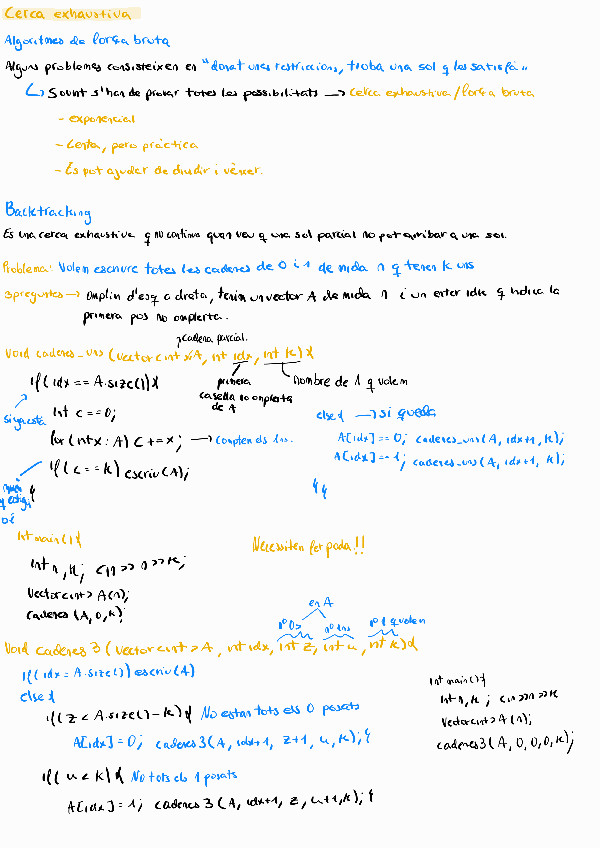 Cerca exhaustiva
Algoritmes de força bruta
Alguns problemes consisteixen en "donat unes restriccions, troba una sol q les satisfà"
↳ Sovint s'han de provar totes les possibilitats → cerca exhaustiva/força bruta
- exponencial
- Lenta, pero pràctica
- Es pot ajudar de dividir i vèncer.
Backtracking
Es una cerca exhaustiva q no continua quan veu q una sol parcial no pot arribar a una sol.
Problema: Volem escriure totes les cadenes de 0 i 1 de mida n q tenen k uns
3 preguntes → Omplin d'esq a dreta, tenim un vector A de mida n i un enter idx q indica la
primera pos no omplerta.
cadena parcial.
Void cadenes_uns (vector<int>& A, int idx, int k) {
if (idx == A.size()) {
primera
casella no omplerta
de A
Nombre de 1 q volem
int c == 0;
for (int x : A) c += x; → Compten els 1ns.
if (c == k) escriu(A);
else { → si queda
A[idx] == 0; cadenes_uns(A, idx+1, k);
A[idx] == 1; cadenes_uns(A, idx+1, k);
}}
int main() {
int n, k; cin >> n >> k;
Vector<int> A(n);
cadenes (A, 0, k);
Necessiten fer poda!!
en A
nº 0s
nº 1ns
nº 1 q volem
Void cadenes 3 (vector<int> A, int idx, int z, int u, int k) {
if (idx = A.size()) escriu(A)
else {
if (z < A.size() - k) { No estan tots els 0 posats
A[idx] = 0; cadenes3(A, idx+1, z+1, u, k); }
if (u < k) { No tots els 1 posats
A[idx] = 1; cadenes 3 (A, idx+1, z, u+1, k); }
int main() {
int n, k; cin >> n >> k
Vector<int> A(n);
cadenes3(A, 0, 0, 0, k);